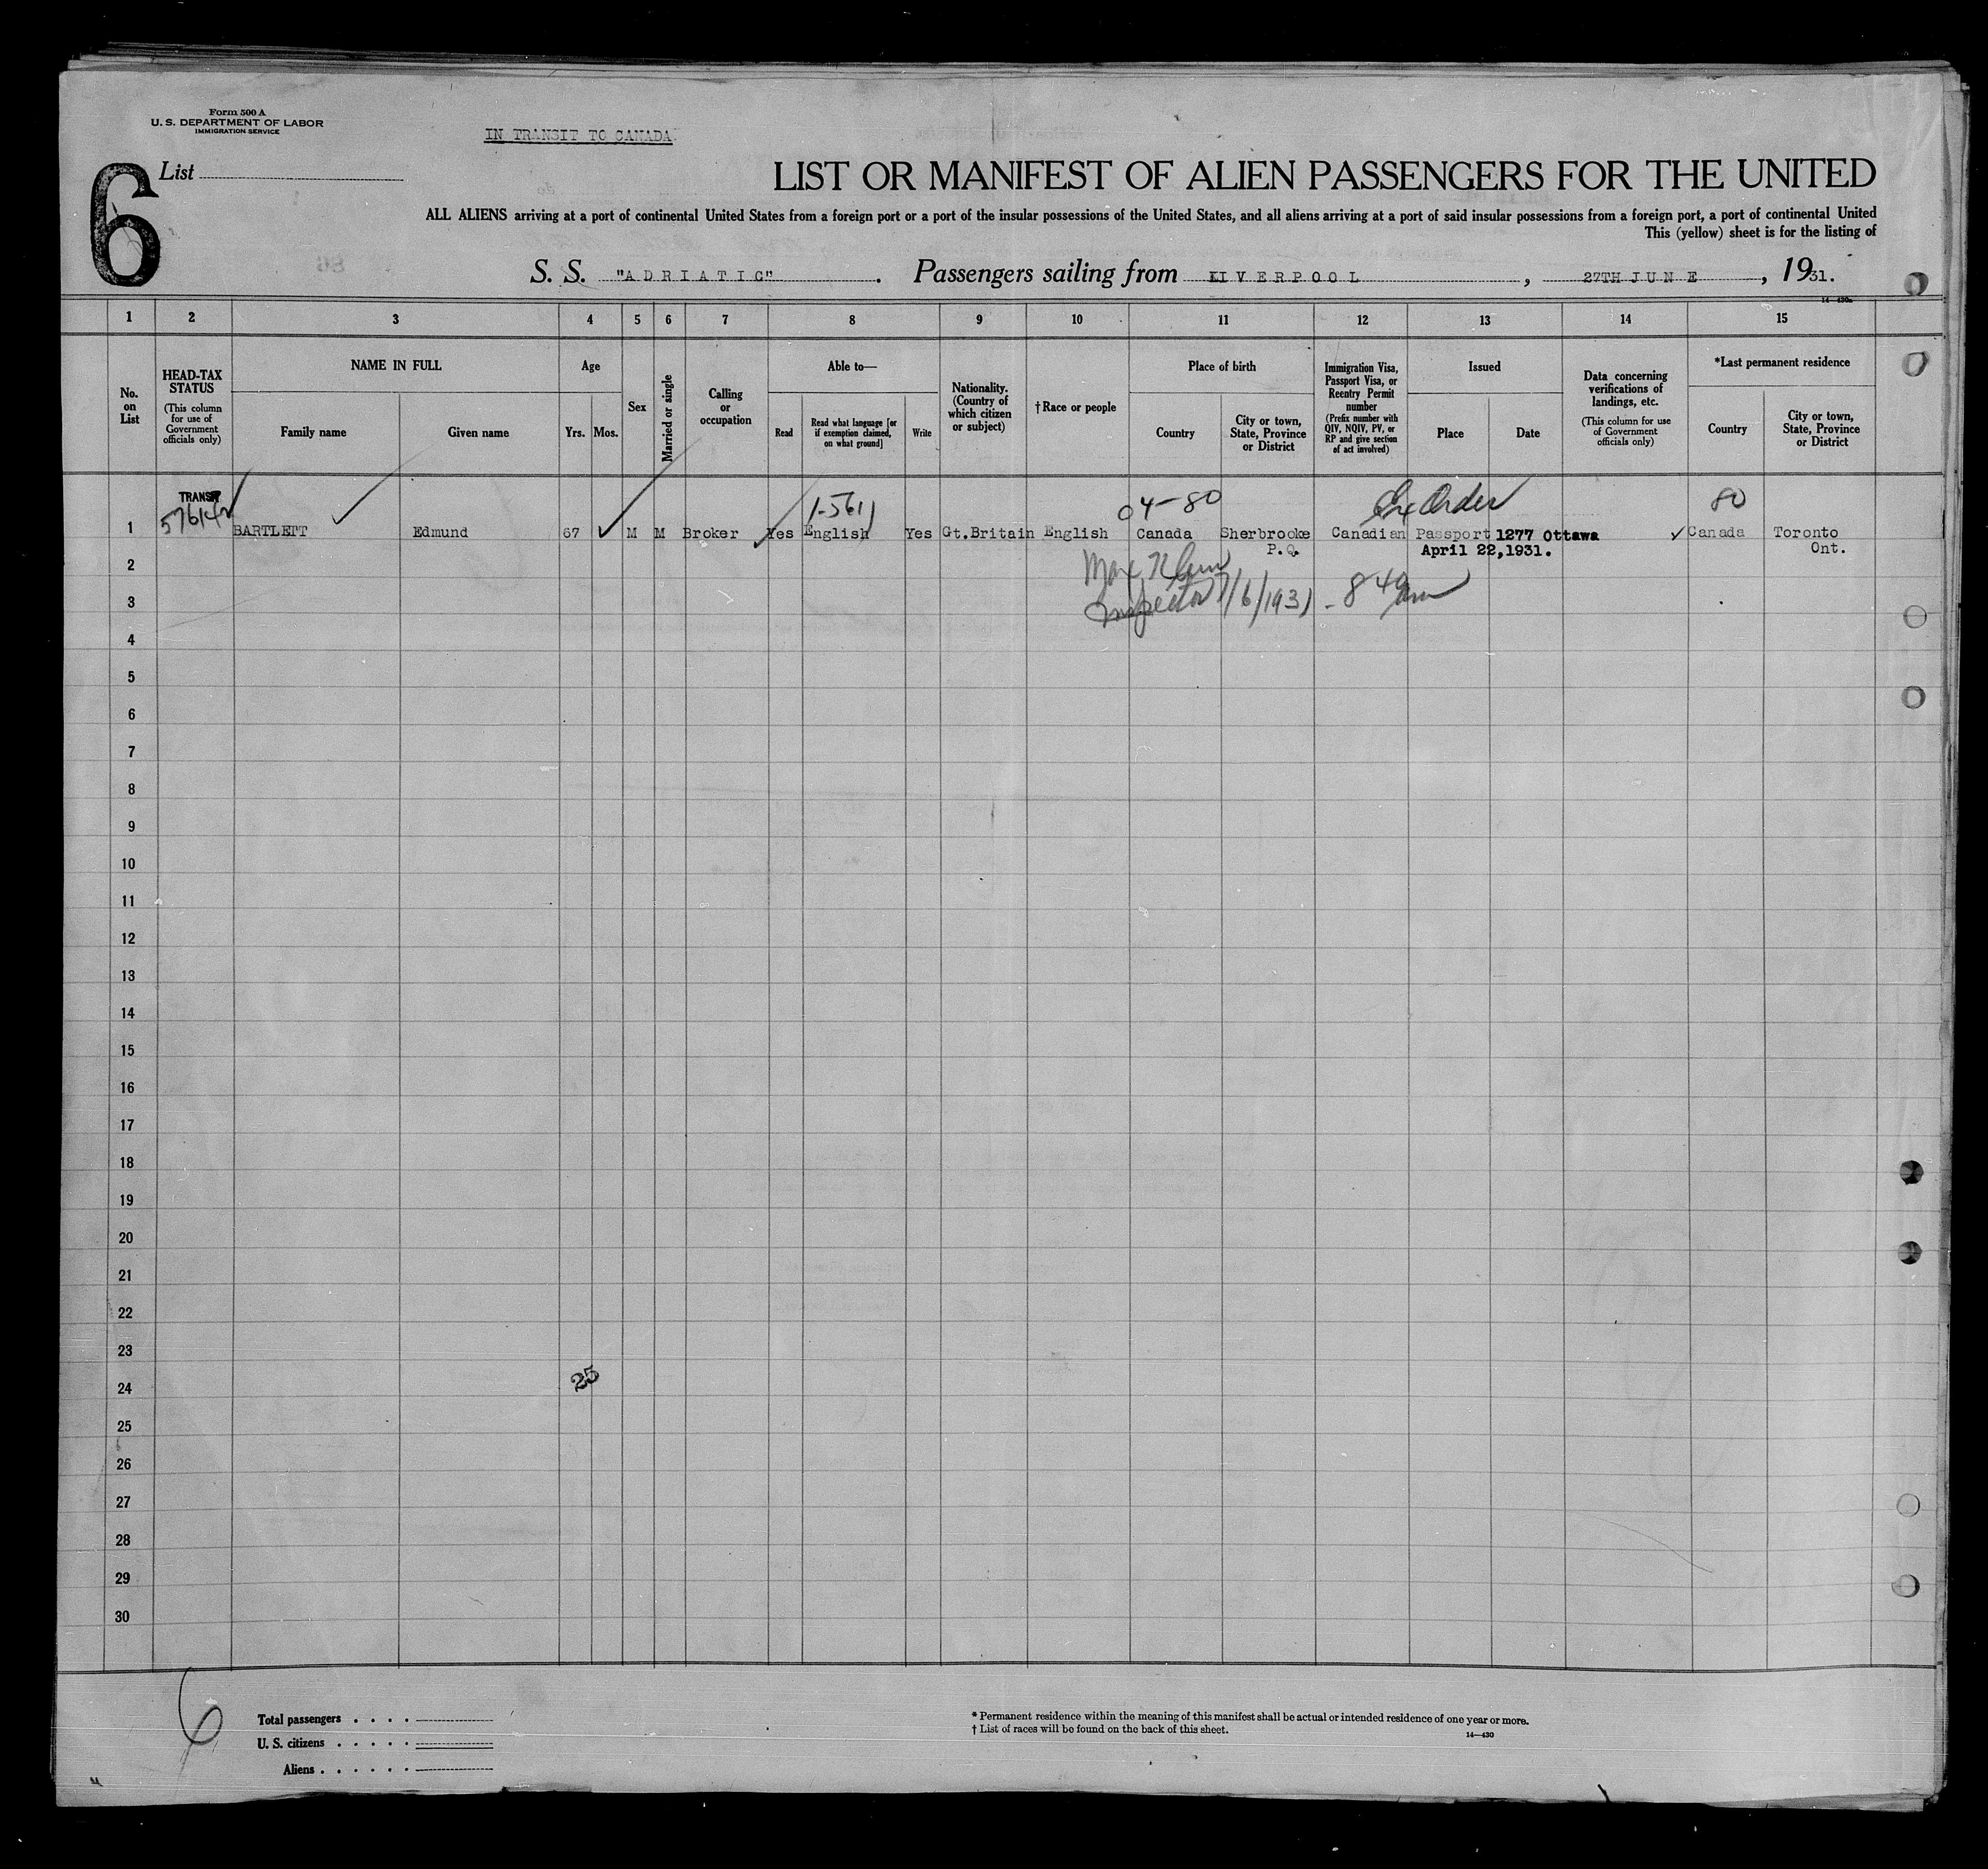 Form 500 A
U. S. DEPARTMENT OF LABOR
IMMIGRATION SERVICE
IN TRANSIT TO CANADA.
6
List
LIST OR MANIFEST OF ALIEN PASSENGERS FOR THE UNITED
ALL ALIENS arriving at a port of continental United States from a foreign port or a port of the insular possessions of the United States, and all aliens arriving at a port of said insular possessions from a foreign port, a port of continental United
This (yellow) sheet is for the listing of
S. S. "ADRIATIC". Passengers sailing from LIVERPOOL, 27TH JUNE, 1931.
14—430a
1 2 3 4 5 6 7 8 9 10 11 12 13 14 15
No. on List
HEAD-TAX STATUS
(This column for use of Government officials only)
NAME IN FULL
Family name
Given name
Age
Yrs. Mos.
Sex
Married or single
Calling or occupation
Able to—
Read
Read what language [or if exemption claimed, on what ground]
Write
Nationality. (Country of which citizen or subject)
† Race or people
Place of birth
Country
City or town, State, Province or District
Immigration Visa, Passport Visa, or Reentry Permit number
(Prefix number with QIV, NQIV, PV, or RP and give section of act involved)
Issued
Place
Date
Data concerning verifications of landings, etc.
(This column for use of Government officials only)
*Last permanent residence
Country
City or town, State, Province or District
TRANSIT
04-80
Ex Order
80
1 BARTLETT Edmund 67 M M Broker Yes English Yes Gt.Britain English Canada Sherbrooke Canadian Passport 1277 Ottawa Canada Toronto
P.Q. April 22,1931. Ont.
2
3
Inspector 7/6/1931 - 8 49am
4
5
6
7
8
9
10
11
12
13
14
15
16
17
18
19
20
21
22
23
24
25
25
26
27
28
29
30
6
Total passengers . . . .
U. S. citizens . . . . .
Aliens . . . . . .
* Permanent residence within the meaning of this manifest shall be actual or intended residence of one year or more.
† List of races will be found on the back of this sheet.
14—430